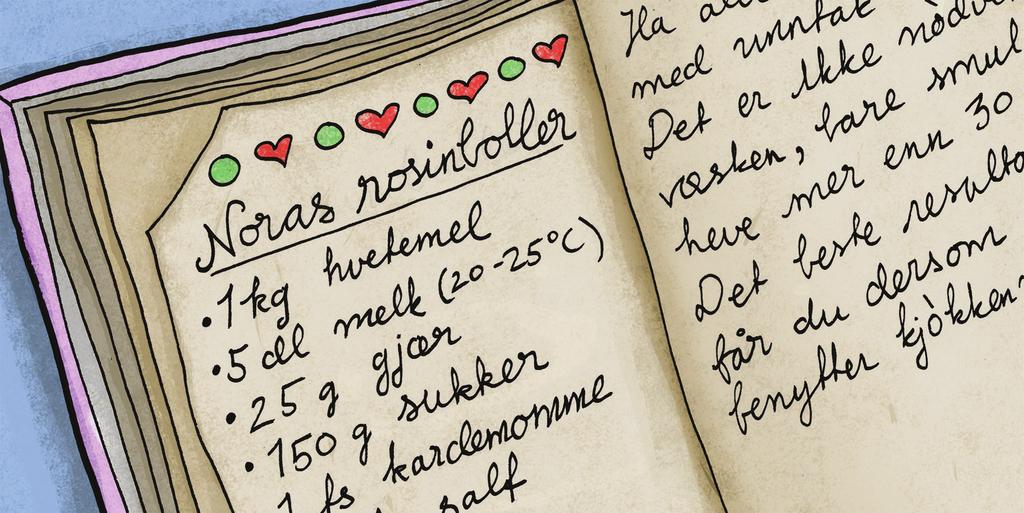 Noras rosinboller
• 1 kg hvetemel
• 5 dl melk (20-25°C)
• 25 g gjær
• 150 g sukker
1 ts kardemomme
salt
Ha
med unntak
Det er ikke
væsken, bare smul
heve mer enn 30
Det beste resulta
får du dersom
benytter kjòkken